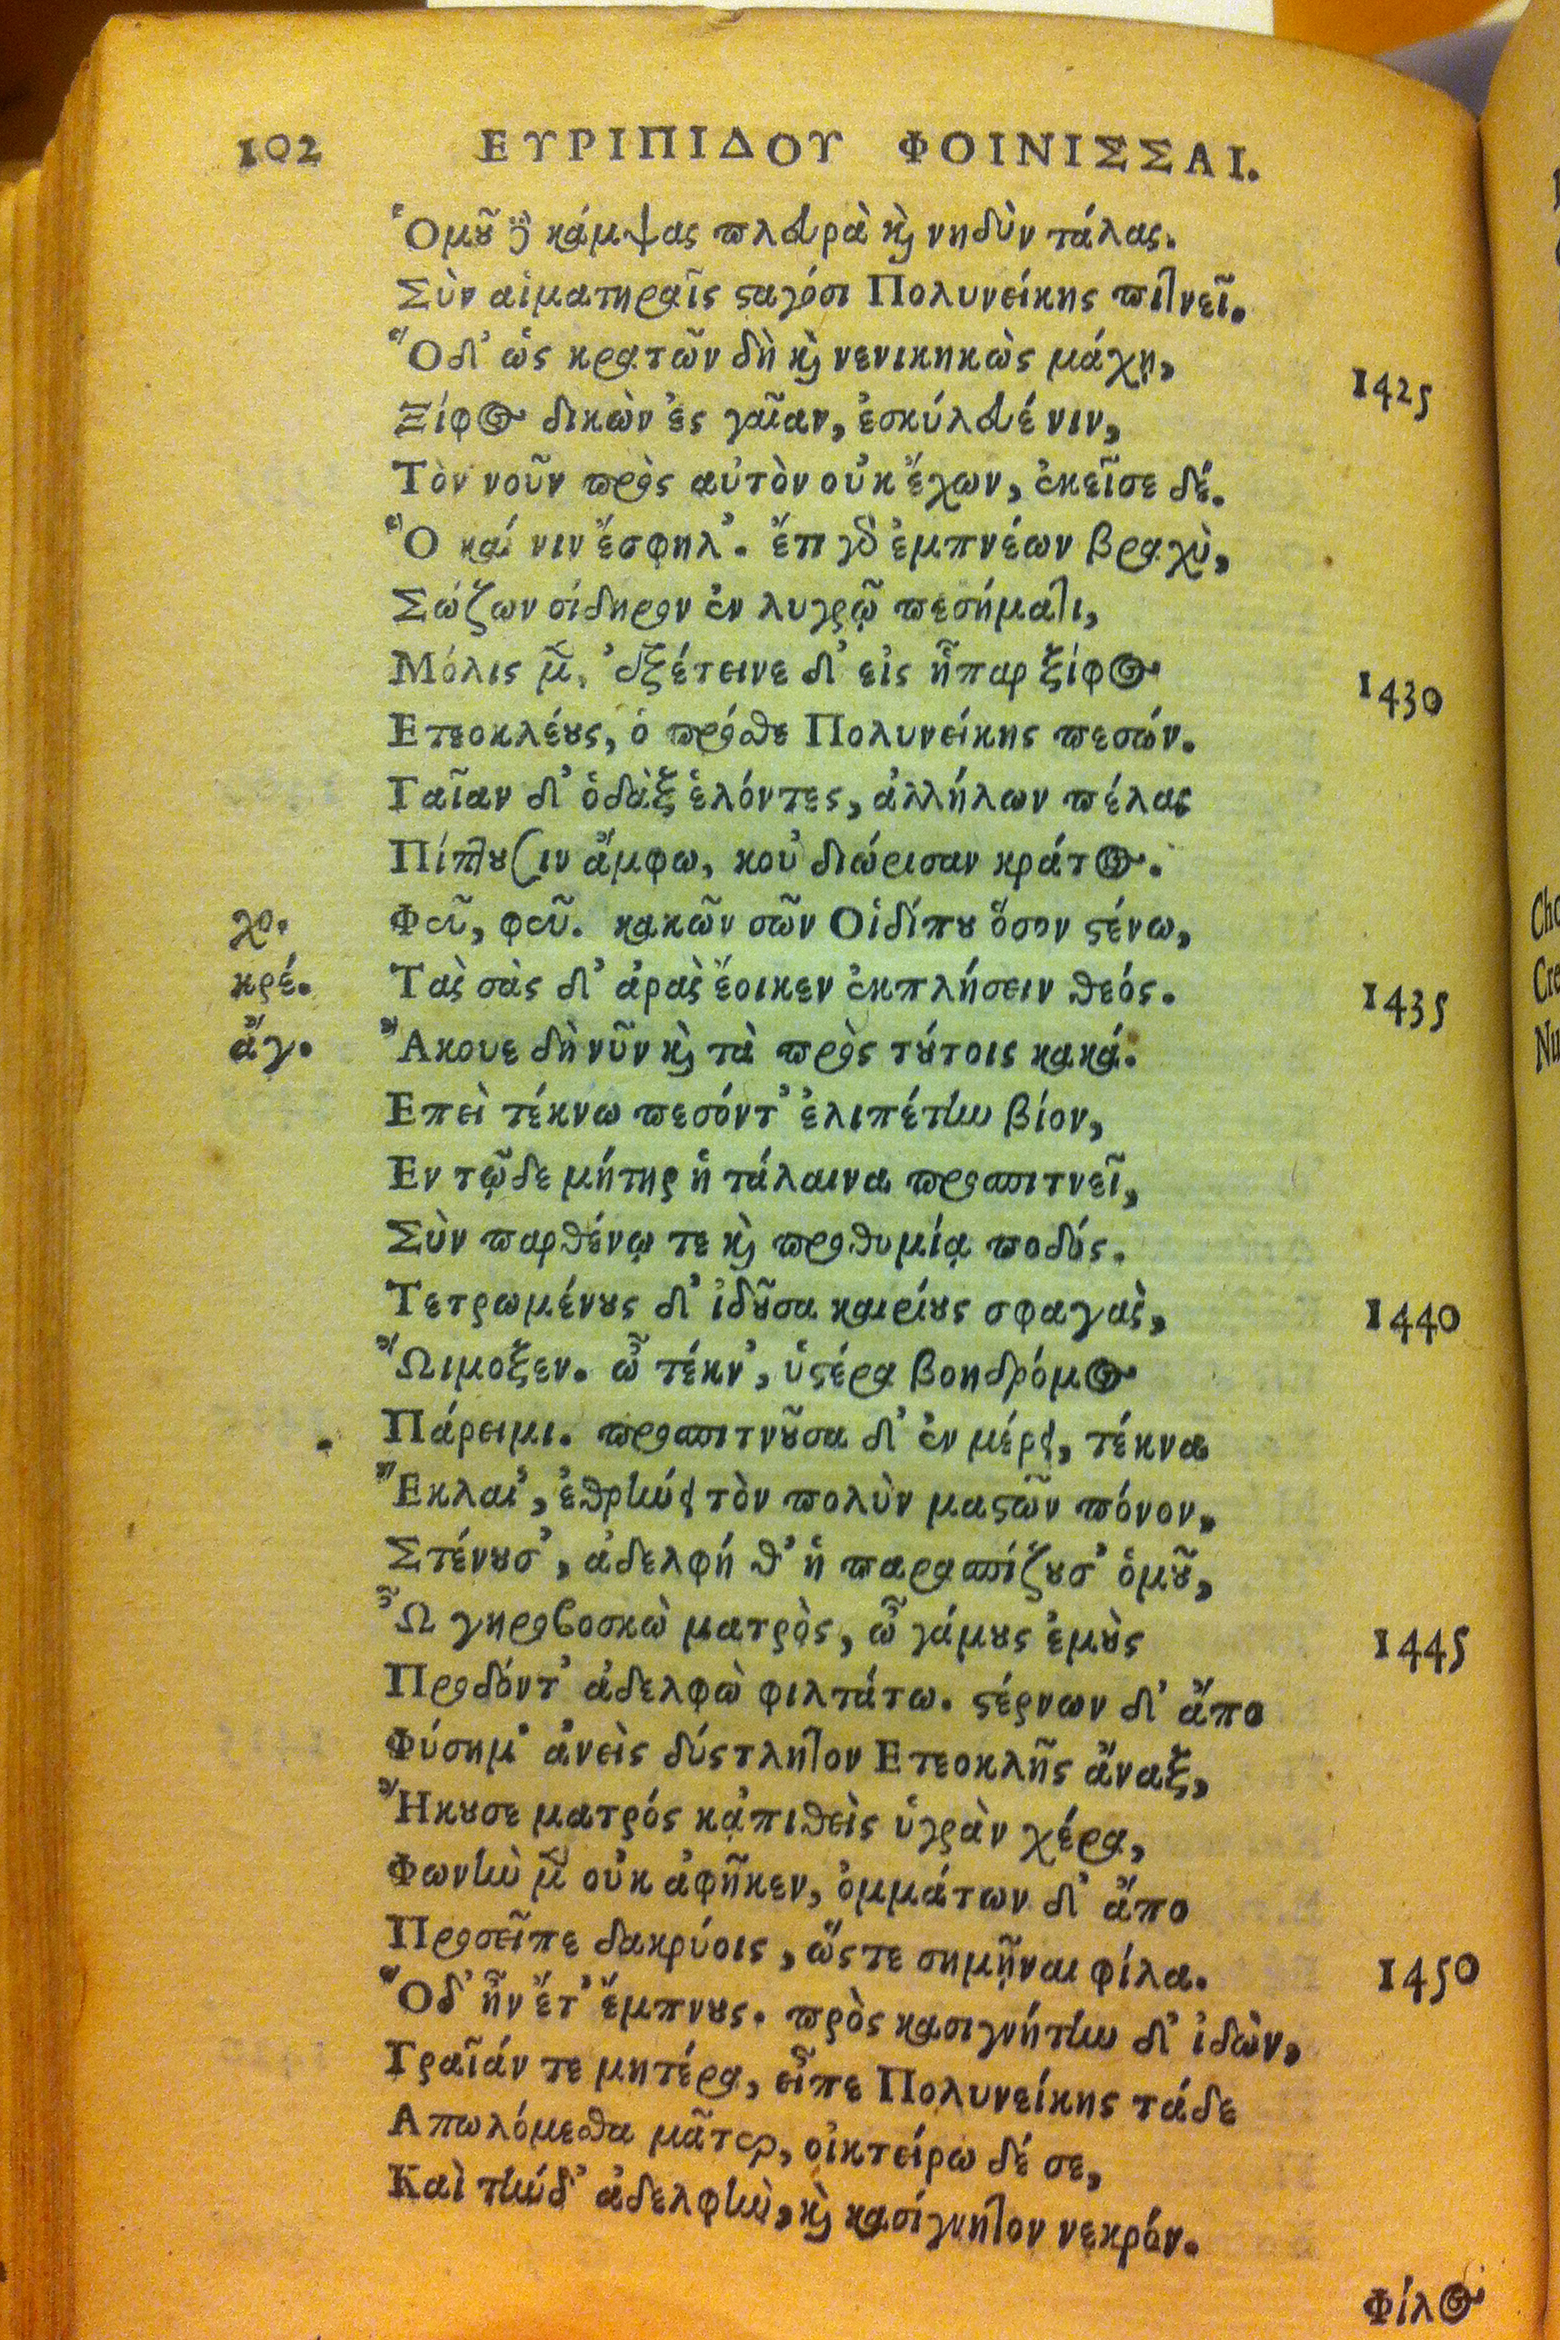 102 ΕΥΡΙΠΙΔΟΥ ΦΟΙΝΙΣΣΑΙ.
Ὁμοῦ δὲ κάμψας πλευρὰ καὶ νηδὺν τάλας.
Σὺν αἱματηραῖς σαγόσι Πολυνείκης πιτνεῖ.
Ὁ δ' ὡς κρατῶν δὴ καὶ νενικηκὼς μάχῃ, 1425
Ξίφος δικὼν ἐς γαῖαν, ἐσκύλευέ νιν,
Τὸν νοῦν πρὸς αὐτὸν οὐκ ἔχων, ἐκεῖσε δέ.
Ὃ καί νιν ἔσφηλ'. ἔτι γὰρ ἐμπνέων βραχὺ,
Σώζων σίδηρον ἐν λυγρῷ πεσήματι,
Μόλις μὲν, ἐξέτεινε δ' εἰς ἧπαρ ξίφος 1430
Ετεοκλέους, ὁ πρόσθε Πολυνείκης πεσών.
Γαῖαν δ' ὀδὰξ ἑλόντες, ἀλλήλων πέλας
Πίπτουσιν ἄμφω, κοὐ διώρισαν κράτος.
χο. Φεῦ, φεῦ. κακῶν σῶν Οἰδίπου ὅσον στένω,
κρέ. Τὰς σὰς δ' ἀρὰς ἔοικεν ἐκπλήσειν θεός. 1435
ἄγ. Ἄκουε δὴ νῦν καὶ τὰ πρὸς τούτοις κακά.
Επεὶ τέκνω πεσόντ' ἐλιπέτην βίον,
Εν τῷδε μήτηρ ἡ τάλαινα προσπιτνεῖ,
Σὺν παρθένῳ τε καὶ προθυμίᾳ ποδός.
Τετρωμένους δ' ἰδοῦσα καιρίους σφαγὰς, 1440
Ὤιμοξεν. ὦ τέκν', ὑστέρα βοηδρόμος
Πάρειμι. προσπιτνοῦσα δ' ἐν μέρει, τέκνα
Ἔκλαι', ἐθρήνει τὸν πολὺν μαστῶν πόνον,
Στένουσ', ἀδελφή θ' ἡ παρασπίζουσ' ὁμοῦ,
Ὦ γηροβοσκὼ ματρὸς, ὦ γάμους ἐμοὺς 1445
Προδόντ' ἀδελφὼ φιλτάτω. στέρνων δ' ἄπο
Φύσημ' ἀνεὶς δύστλητον Ετεοκλῆς ἄναξ,
Ἤκουσε ματρός κἀπιθεὶς ὑγρὰν χέρα,
Φωνὴν μὲν οὐκ ἀφῆκεν, ὀμμάτων δ' ἄπο
Προσεῖπε δακρύοις, ὥστε σημῆναι φίλα. 1450
Ὁδ' ἦν ἔτ' ἔμπνους. πρὸς κασιγνήτην δ' ἰδὼν,
Γραῖάν τε μητέρα, εἶπε Πολυνείκης τάδε
Απωλόμεσθα μᾶτερ, οἰκτείρω δέ σε,
Καὶ τήνδ' ἀδελφὴν, καὶ κασίγνητον νεκρόν.
Φίλος